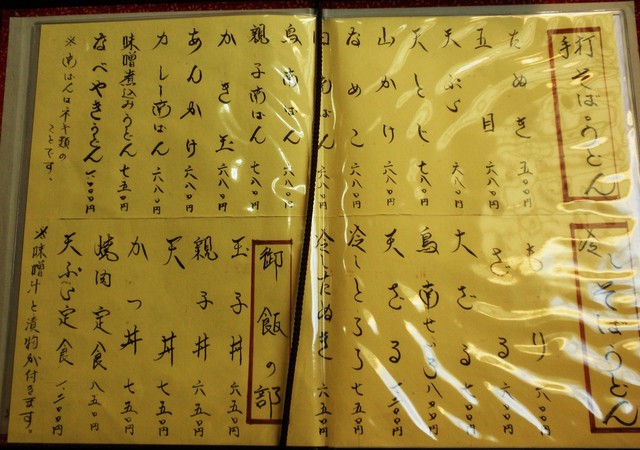 手打そば・うどん
たぬき 五〇〇円
五目 六八〇円
天ぷら 六八〇円
天とじ 七八〇円
山かけ 六八〇円
なめこ 六八〇円
南ばん 六八〇円
鳥南ばん 六八〇円
親子南ばん 七八〇円
かき玉 六八〇円
あんかけ 六八〇円
カレー南ばん 六八〇円
味噌煮込みうどん 七五〇円
なべやきうどん 一、〇〇〇円
※南ばんはネギ類の
ことです。
冷しそばうどん
もり 五〇〇円
ざる 六〇〇円
大ざる 七〇〇円
鳥南せいろ 八〇〇円
天ざる 一、二〇〇円
冷しとろろ 七五〇円
冷したぬき 六五〇円
御飯の部
玉子丼 六五〇円
親子丼 六五〇円
天丼 七五〇円
かつ丼 七五〇円
焼肉定食 八五〇円
天ぷら定食 一、二〇〇円
※味噌汁と漬物が付きます。